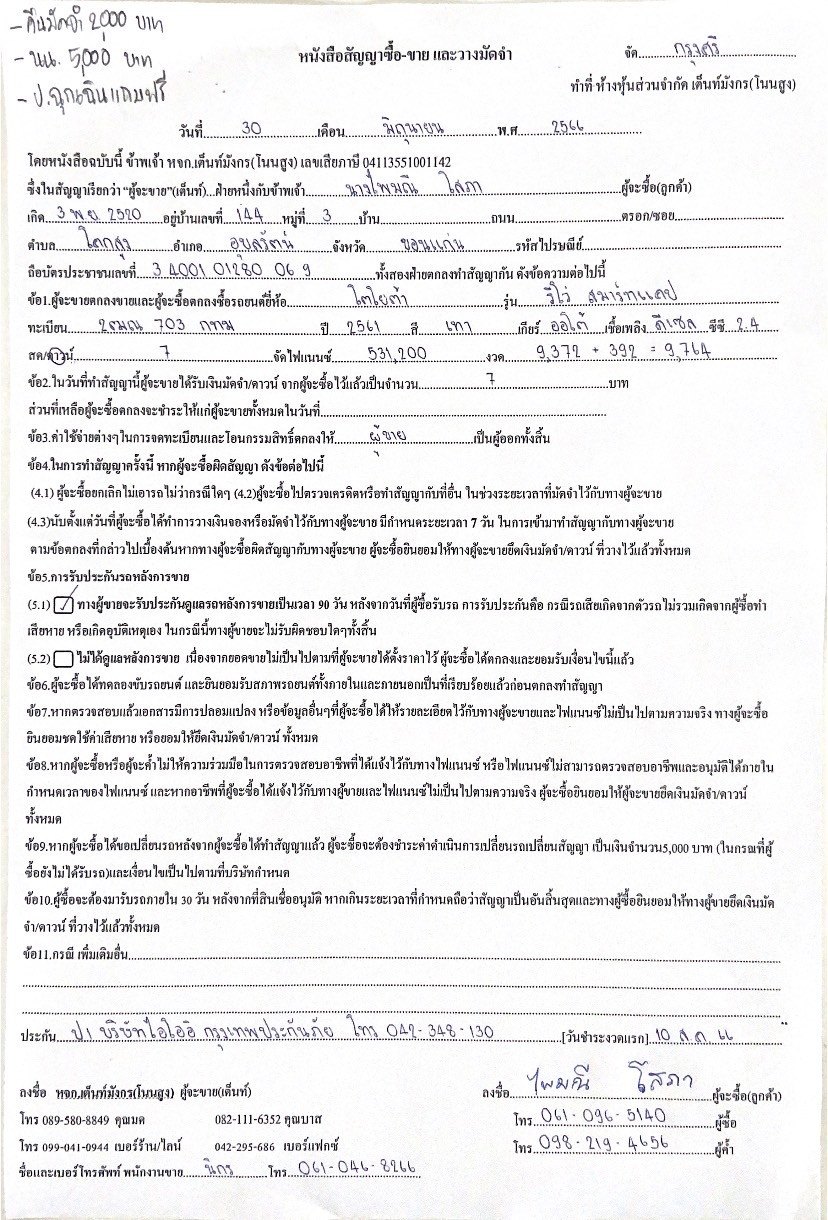 - คืนมัดจำ 2,000 บาท
- นน. 5,000 บาท
- ป.ฉุกเฉินแถมฟรี
หนังสือสัญญาซื้อ-ขาย และวางมัดจำ
จัด....กรุงศรี
ทำที่ ห้างหุ้นส่วนจำกัด เต็นท์มังกร(โนนสูง)
วันที่....30....เดือน....มิถุนายน....พ.ศ....2566
โดยหนังสือฉบับนี้ ข้าพเจ้า หจก.เต็นท์มังกร(โนนสูง) เลขเสียภาษี 04113551001142
ซึ่งในสัญญาเรียกว่า "ผู้จะขาย"(เต็นท์)...ฝ่ายหนึ่งกับข้าพเจ้า....นางไพมณี โสภา....ผู้จะซื้อ(ลูกค้า)
เกิด 3 พ.ย. 2520 อยู่บ้านเลขที่ 144 หมู่ที่ 3 บ้าน........ถนน........ตรอก/ซอย........
ตำบล โคกสูง อำเภอ อุบลรัตน์ จังหวัด ขอนแก่น รหัสไปรษณีย์........
ถือบัตรประชาชนเลขที่ 3 4001 01280 06 9 ทั้งสองฝ่ายตกลงทำสัญญากัน ดังข้อความต่อไปนี้
ข้อ1.ผู้จะขายตกลงขายและผู้จะซื้อตกลงซื้อรถยนต์ยี่ห้อ โตโยต้า รุ่น รีโว่ สมาร์ทแคป
ทะเบียน 2ฒฌ 703 กทม ปี 2561 สี เทา เกียร์ ออโต้ เชื้อเพลิง ดีเซล ซีซี 2.4
สด/ดาวน์ 7 จัดไฟแนนซ์ 531,200 งวด 9,372 + 392 = 9,764
ข้อ2.ในวันที่ทำสัญญานี้ผู้จะขายได้รับเงินมัดจำ/ดาวน์ จากผู้จะซื้อไว้แล้วเป็นจำนวน 7 บาท
ส่วนที่เหลือผู้จะซื้อตกลงจะชำระให้แก่ผู้จะขายทั้งหมดในวันที่........
ข้อ3.ค่าใช้จ่ายต่างๆในการจดทะเบียนและโอนกรรมสิทธิ์ตกลงให้ ผู้ขาย เป็นผู้ออกทั้งสิ้น
ข้อ4.ในการทำสัญญาครั้งนี้ หากผู้จะซื้อผิดสัญญา ดังข้อต่อไปนี้
(4.1) ผู้จะซื้อยกเลิกไม่เอารถไม่ว่ากรณีใดๆ (4.2)ผู้จะซื้อไปตรวจเครดิตหรือทำสัญญากับที่อื่น ในช่วงระยะเวลาที่มัดจำไว้กับทางผู้จะขาย
(4.3)นับตั้งแต่วันที่ผู้จะซื้อได้ทำการวางเงินจองหรือมัดจำไว้กับทางผู้จะขาย มีกำหนดระยะเวลา 7 วัน ในการเข้ามาทำสัญญากับทางผู้จะขาย
ตามข้อตกลงที่กล่าวไปเบื้องต้นหากทางผู้จะซื้อผิดสัญญากับทางผู้จะขาย ผู้จะซื้อยินยอมให้ทางผู้จะขายยึดเงินมัดจำ/ดาวน์ ที่วางไว้แล้วทั้งหมด
ข้อ5.การรับประกันรถหลังการขาย
(5.1) ทางผู้ขายจะรับประกันดูแลรถหลังการขายเป็นเวลา 90 วัน หลังจากวันที่ผู้ซื้อรับรถ การรับประกันคือ กรณีรถเสียเกิดจากตัวรถไม่รวมเกิดจากผู้ซื้อทำ
เสียหาย หรือเกิดอุบัติเหตุเอง ในกรณีนี้ทางผู้ขายจะไม่รับผิดชอบใดๆทั้งสิ้น
(5.2) ไม่ได้ดูแลหลังการขาย เนื่องจากยอดขายไม่เป็นไปตามที่ผู้จะขายได้ตั้งราคาไว้ ผู้จะซื้อได้ตกลงและยอมรับเงื่อนไขนี้แล้ว
ข้อ6.ผู้จะซื้อได้ทดลองขับรถยนต์ และยินยอมรับสภาพรถยนต์ทั้งภายในและภายนอกเป็นที่เรียบร้อยแล้วก่อนตกลงทำสัญญา
ข้อ7.หากตรวจสอบแล้วเอกสารมีการปลอมแปลง หรือข้อมูลอื่นๆที่ผู้จะซื้อได้ให้รายละเอียดไว้กับทางผู้จะขายและไฟแนนซ์ไม่เป็นไปตามความจริง ทางผู้จะซื้อ
ยินยอมชดใช้ค่าเสียหาย หรือยอมให้ยึดเงินมัดจำ/ดาวน์ ทั้งหมด
ข้อ8.หากผู้จะซื้อหรือผู้จะค้ำไม่ให้ความร่วมมือในการตรวจสอบอาชีพที่ได้แจ้งไว้กับทางไฟแนนซ์ หรือไฟแนนซ์ไม่สามารถตรวจสอบอาชีพและอนุมัติได้ภายใน
กำหนดเวลาของไฟแนนซ์ และหากอาชีพที่ผู้จะซื้อได้แจ้งไว้กับทางผู้ขายและไฟแนนซ์ไม่เป็นไปตามความจริง ผู้จะซื้อยินยอมให้ผู้จะขายยึดเงินมัดจำ/ดาวน์
ทั้งหมด
ข้อ9.หากผู้จะซื้อได้ขอเปลี่ยนรถหลังจากผู้จะซื้อได้ทำสัญญาแล้ว ผู้จะซื้อจะต้องชำระค่าดำเนินการเปลี่ยนรถเปลี่ยนสัญญา เป็นเงินจำนวน5,000 บาท (ในกรณที่ผู้
ซื้อยังไม่ได้รับรถ)และเงื่อนไขเป็นไปตามที่บริษัทกำหนด
ข้อ10.ผู้ซื้อจะต้องมารับรถภายใน 30 วัน หลังจากที่สินเชื่ออนุมัติ หากเกินระยะเวลาที่กำหนดถือว่าสัญญาเป็นอันสิ้นสุดและทางผู้ซื้อยินยอมให้ทางผู้ขายยึดเงินมัด
จำ/ดาวน์ ที่วางไว้แล้วทั้งหมด
ข้อ11.กรณี เพิ่มเติมอื่น........
ประกัน ป1 บริษัทไอโออิ กรุงเทพประกันภัย โทร 042-348-130 [วันชำระงวดแรก] 10 ส.ค. 66
ลงชื่อ หจก.เต็นท์มังกร(โนนสูง) ผู้จะขาย(เต็นท์)
ลงชื่อ ไพมณี โสภา ผู้จะซื้อ(ลูกค้า)
โทร 089-580-8849 คุณมด 082-111-6352 คุณบาส
โทร 061-096-5140 ผู้ซื้อ
โทร 099-041-0944 เบอร์ร้าน/ไลน์ 042-295-686 เบอร์แฟกซ์
โทร 098-219-4656 ผู้ค้ำ
ชื่อและเบอร์โทรศัพท์ พนักงานขาย นิกร โทร 061-046-8266